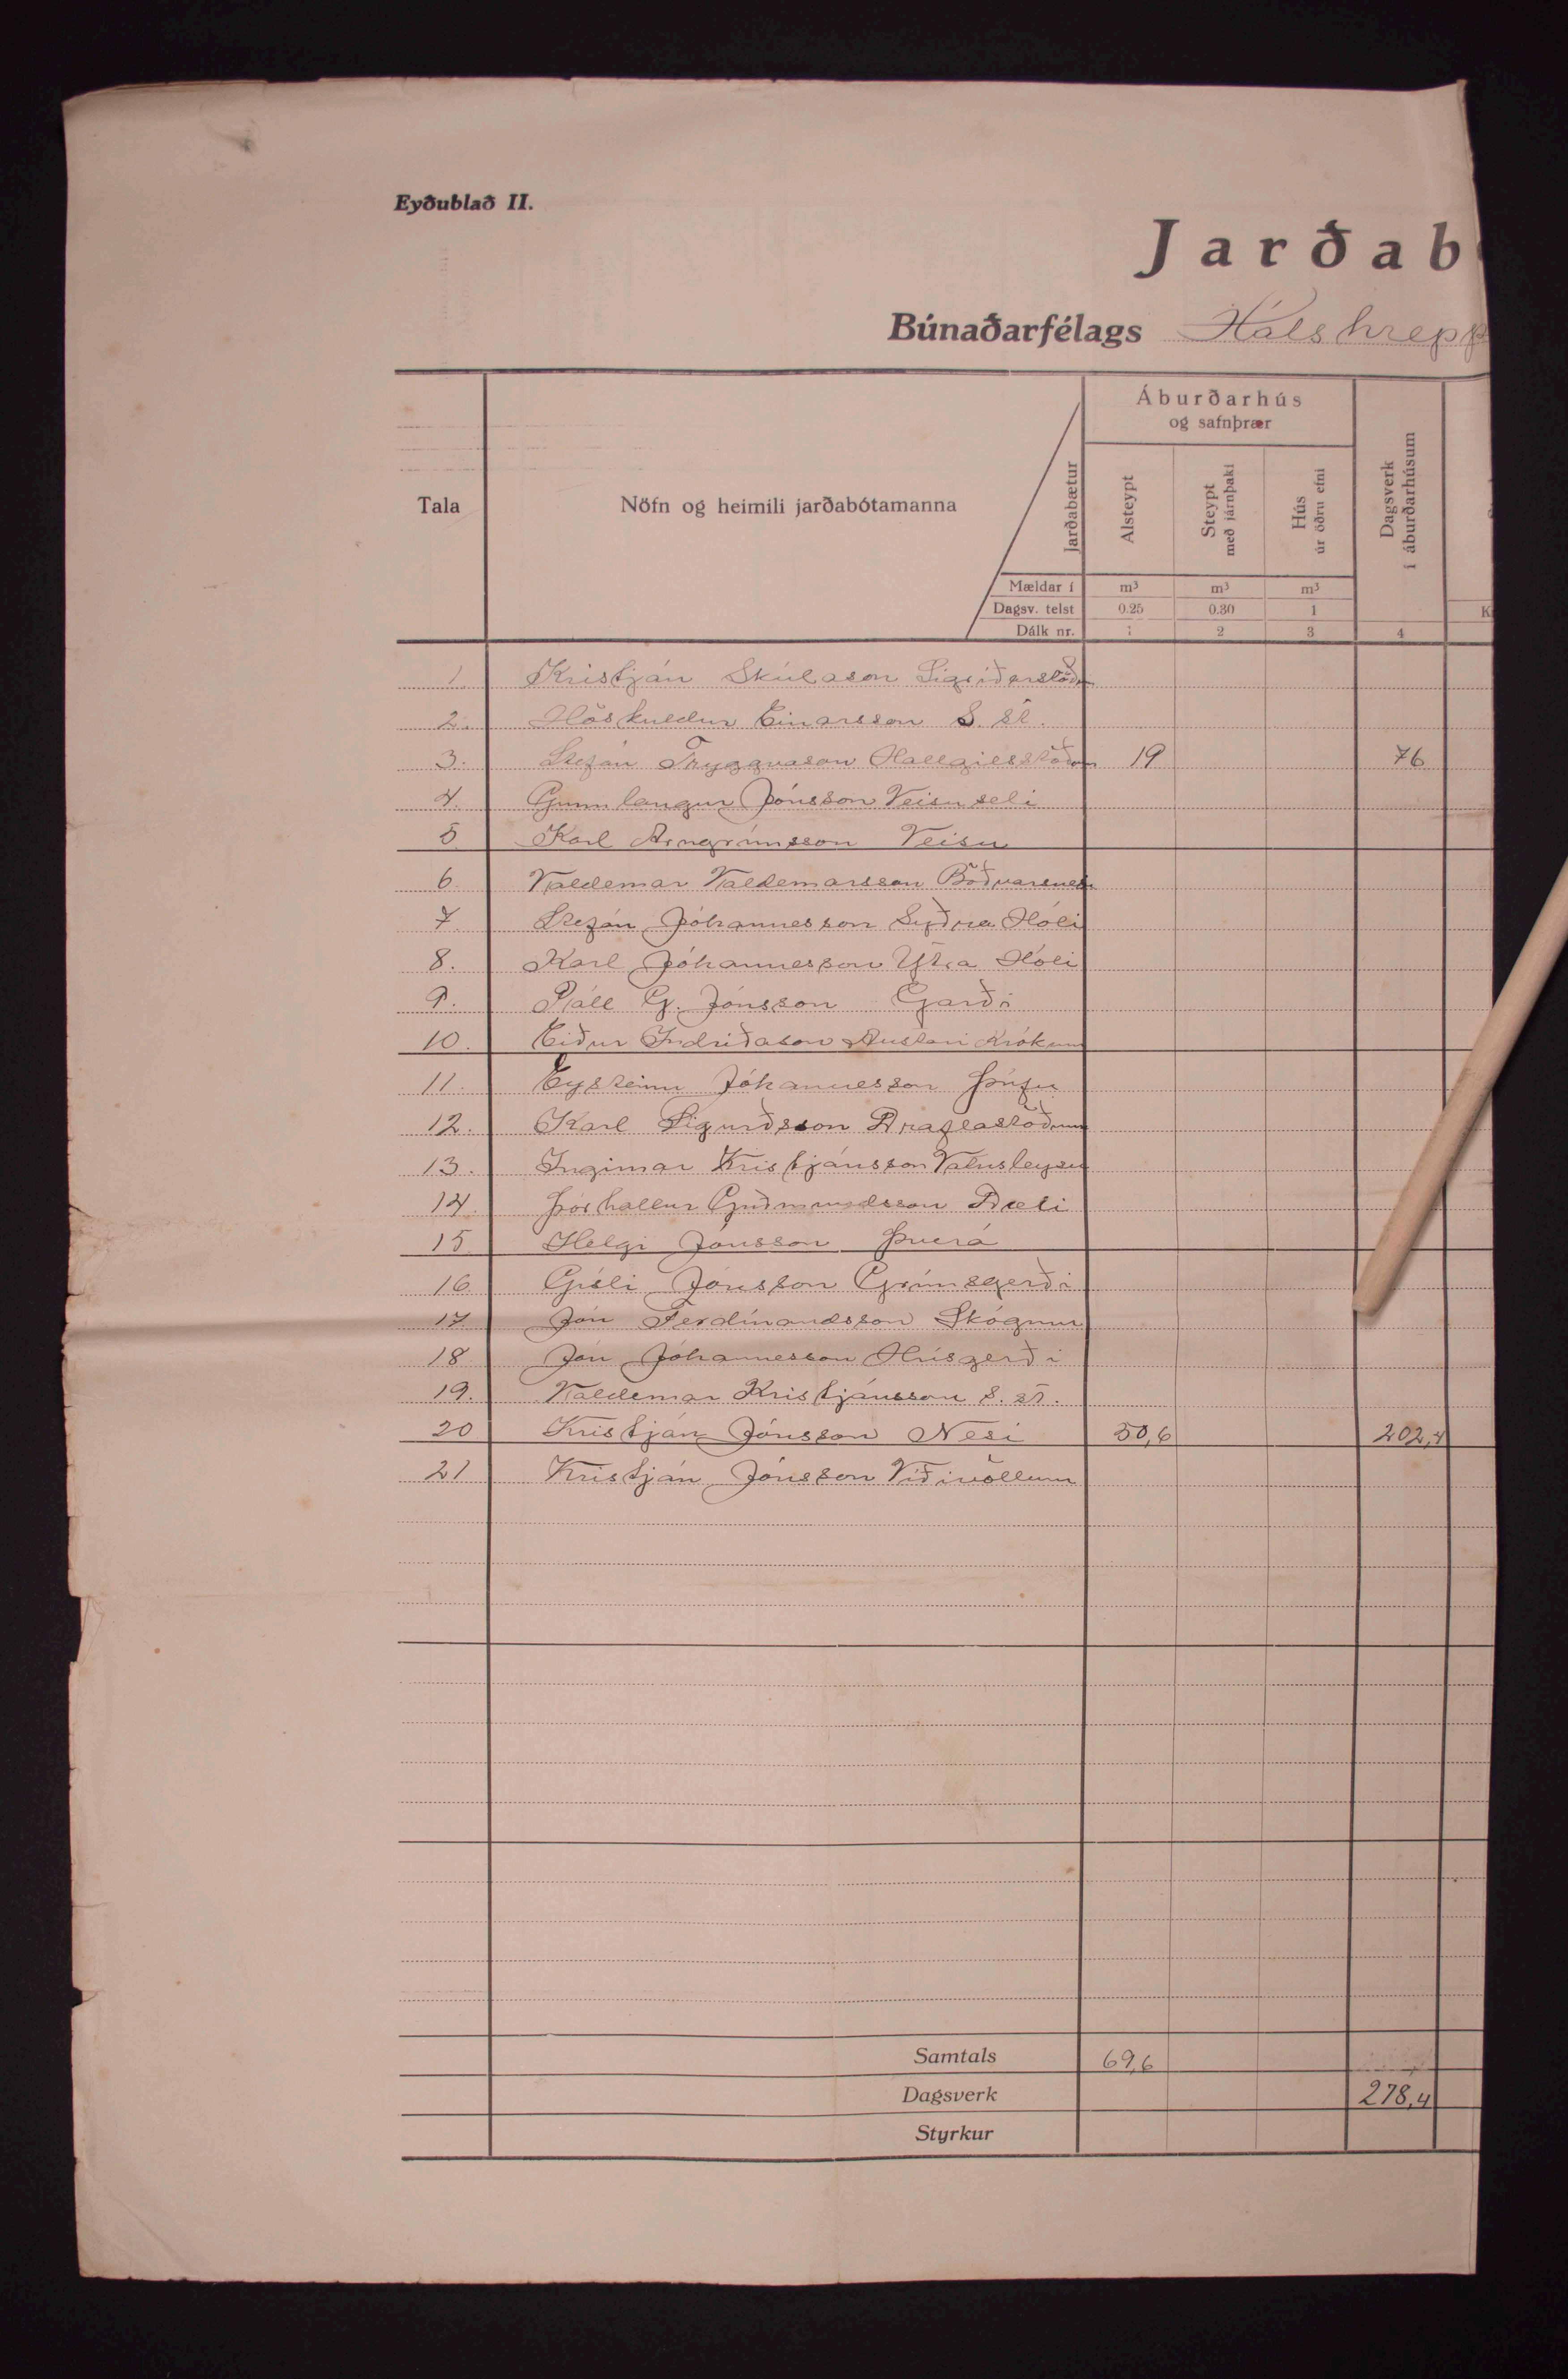 Eyðublað II.
Jarðab
Búnaðarfélags Hálshrepp
Tala
Nöfn og heimili jarðabótamanna
Jarðabætur
Áburðarhús
og safnþrær
Alsteypt
Steypt
með járnþaki
Hús
úr öðru efni
Dagsverk
í áburðarhúsum
Mældar í m³ m³ m³
Dagsv. telst 0.25 0.30 1 K
Dálk nr. 1 2 3 4
1. Kristján Skúlason Sigríðarstöðum
2. Höskuldur Einarsson S. st.
3. Stefán Tryggvason Hallgilsstöðum 19 76
4. Gunnlaugur Jónsson Veisuseli
5 Karl Arngrímsson Veisu
6 Valdemar Valdemarsson Böðvarsnesi
7. Stefán Jóhannesson Syðra Hóli
8. Karl Jóhannesson Ytra Hóli
9. Páll G. Jónsson Garði
10. Eiður Indriðason Austari Krókum
11. Eysteinn Jóhannesson Þúfu
12. Karl Sigurðsson Draflastöðum
13. Ingimar Kristjánsson Vatnsleysu
14. Þórhallur Guðmundsson Bæli
15 Helgi Jónsson Þverá
16 Gísli Jónsson Grímsgerði
17. Jón Ferdínandsson Skógum
18 Jón Jóhannesson Hrísgerði
19. Valdemar Kristjánsson S. st.
20 Kristján Jónsson Nesi 50,6 202,4
21 Kristján Jónsson Víðivöllum
Samtals 69,6
Dagsverk 278,4
Styrkur